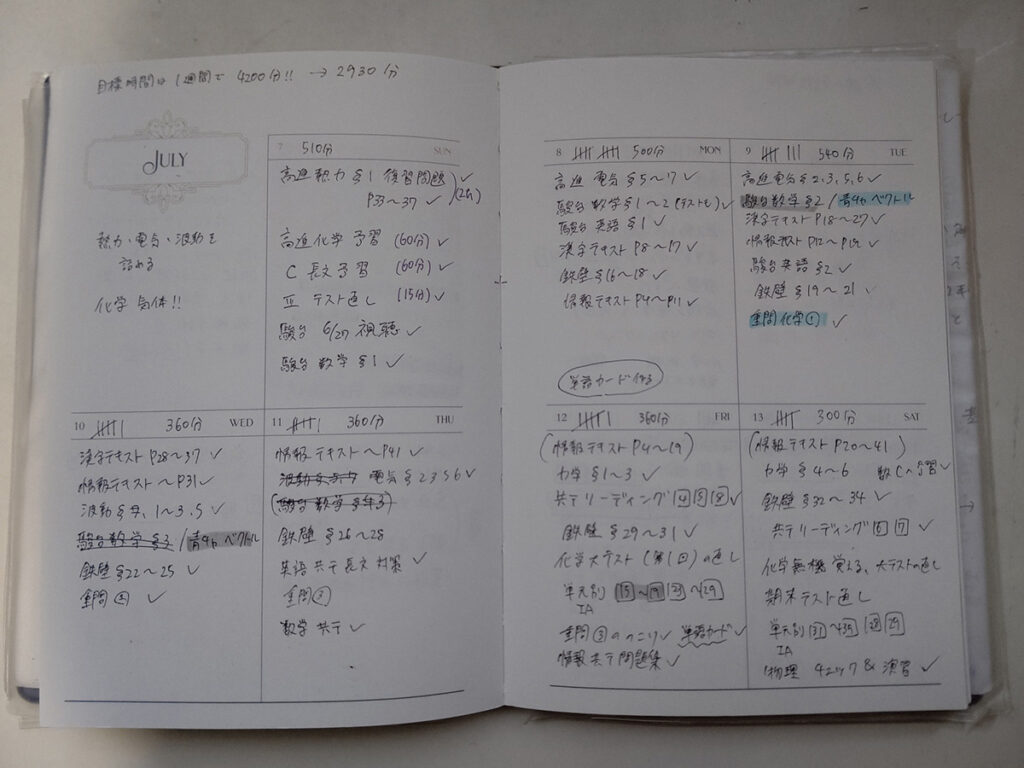 目標時間は1週間で 4200分!! → 2930分
JULY
熱力・電気・波動を
詰める
化学 気体!!
7 510分 SUN
高進熱力 §1 復習問題 ✓
P33〜37 ✓
高進化学 予習 (60分) ✓
C 長文予習 (60分) ✓
テスト直し (15分) ✓
駿台 6/27 視聴 ✓
駿台数学 §1 ✓
8 500分 MON
高進 電気 §5〜7 ✓
駿台数学 §1〜2 (テストも) ✓
駿台英語 §1 ✓
漢字テキスト P8〜17 ✓
鉄壁 §16〜18 ✓
情報テキスト P4〜P11 ✓
単語カード作る
9 540分 TUE
高進電気 §2,3,5,6 ✓
駿台数学 §2 / 青チャ ベクトル
漢字テキスト P18〜27 ✓
情報テキスト P12〜P19 ✓
駿台英語 §2 ✓
鉄壁 §19〜21 ✓
重問化学① ✓
10 360分 WED
漢字テキスト P28〜37 ✓
情報テキスト〜P31 ✓
波動 1〜3.5 ✓
駿台数学 §3 / 青チャ ベクトル
鉄壁 §22〜25 ✓
重問 ✓
11 360分 THU
情報テキスト〜P41 ✓
電気 §2 3 5 6 ✓
(駿台数学
鉄壁 §26〜28
英語 共テ 長文 対策 ✓
重問②
数学 共テ ✓
12 360分 FRI
(情報テキスト P4〜19)
力学 §1〜3 ✓
共テリーディング 4 5 8 ✓
鉄壁 §29〜31 ✓
化学大テスト (第1回) の直し
単元別 15〜19 〜29
IA
重問③ののこり ✓ 単語カード ✓
情報 共テ 問題集 ✓
13 300分 SAT
(情報テキスト P20〜41)
力学 §4〜6 数C 予習 ✓
鉄壁 §32〜34 ✓
共テリーディング 6 7 ✓
化学無機 覚える、大テストの直し
期末テスト直し
単元別
IA
物理 & 演習 ✓